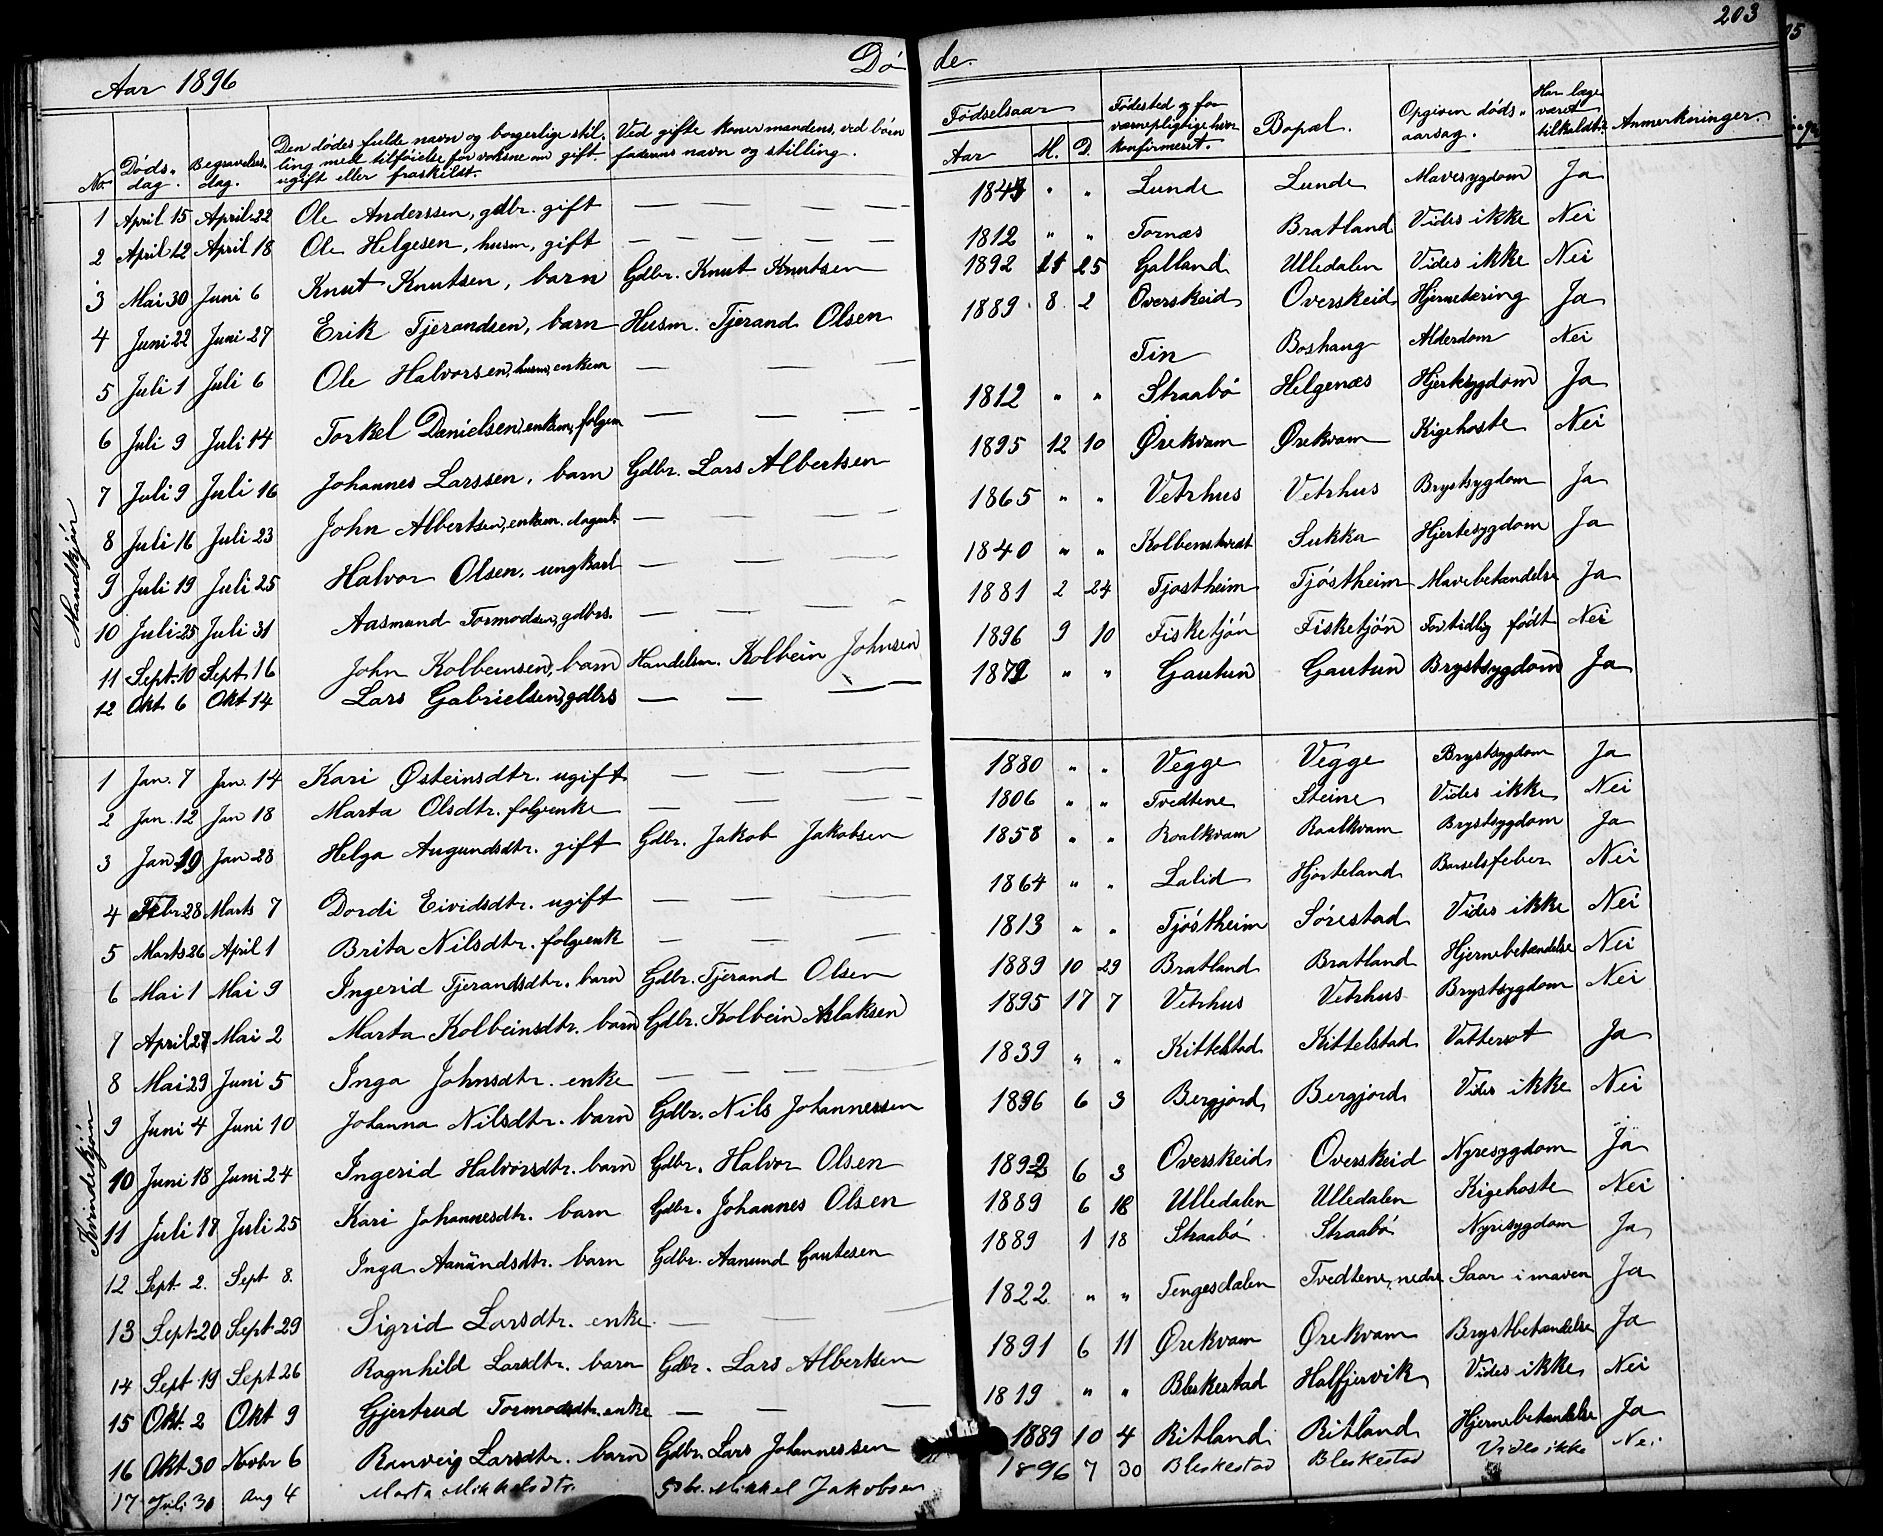 203
Aar 1896 Døde.
No. Døds-dag. Begravelses-dag. Den dødes fulde navn og borgerlige stilling med tilføielse for voksne om gift, ugift eller fraskilt. Ved gifte koner mandens, ved børn faderens navn og stilling. Fødselsaar Aar M. D. Fødested og for værnepligtige hvor konfirmeret. Bopæl. Opgiven døds-aarsag. Har læge været tilkaldt? Anmerkninger.
Mandkjøn
1 April 15 April 22 Ole Anderssen, gdbr. gift — — — — 1847 " " Lunde Lunde Mavesygdom Ja
2 April 12 April 18 Ole Helgesen, husm, gift — — — — 1812 " " Tornæs Bratland Vides ikke Nei
3 Mai 30 Juni 6 Knut Knutsen, barn Gdbr. Knut Knutsen 1892 21 25 Galland Ulledalen Vides ikke Nei
4 Juni 22 Juni 27 Erik Tjerandsen, barn Husm. Tjerand Olsen 1889 8 2 Overskeid Overskeid Hjernetæring Ja
5 Juli 1 Juli 6 Ole Halvorsen, husm, enkem — — — Tin Boshaug Alderdom Nei
6 Juli 9 Juli 14 Torkel Danielsen, enkem, folgem — — — 1812 " " Straabø Helgenæs Hjertesygdom Ja
7 Juli 9 Juli 16 Johannes Larssen, barn Gdbr. Lars Albertsen 1895 12 10 Ørekvam Ørekvam Kigehoste Nei
8 Juli 16 Juli 23 John Albertsen, enkem. dagarb. — — — 1865 " " Vetrhus Vetrhus Brystsygdom Ja
9 Juli 19 Juli 25 Halvor Olsen, ungkarl — — — 1840 " " Kolbenstvedt Sukka Hjertesygdom Ja
10 Juli 25 Juli 31 Aasmund Tormodsen, gdbrs. — — — 1881 2 24 Tjøstheim Tjøstheim Mavebetændelse Ja
11 Sept. 10 Sept 16 John Kolbeinsen, barn Handelsm. Kolbein Johnsen 1896 9 10 Fisketjøn Fisketjøn For tidlig født Nei
12 Okt 6 Okt 14 Lars Gabrielsen, gdbrs — — — 1879 " " Gautun Gautun Brystsygdom Ja
Kvindekjøn
1 Jan. 7 Jan. 14 Kari Østeinsdtr. ugift — — — 1880 " " Vegge Vegge Brystsygdom Ja
2 Jan. 12 Jan 18 Marta Olsdtr. folgeenke — — — 1806 " " Tvedtene Steine Vides ikke Nei
3 Jan 19 Jan 28 Helga Augundsdtr. gift Gdbr. Jakob Jakobsen 1858 " " Roalkvam Roalkvam Brystsygdom Ja
4 Febr 28 Marts 7 Dordi Eividsdtr. ugift — — — 1864 " " Lalid Hjorteland Barselsfeber Nei
5 Marts 26 April 1 Brita Nilsdtr. folgeenk — — — 1813 " " Tjøstheim Sørestad Vides ikke Nei
6 Mai 1 Mai 9 Ingerid Tjerandsdtr. barn Gdbr. Tjerand Olsen 1889 10 29 Bratland Bratland Hjernebetændelse Nei
7 April 27 Mai 2 Marta Kolbeinsdtr. barn Gdbr. Kolbein Aslaksen 1895 17 7 Vetrhus Vetrhus Brystsygdom Nei
8 Mai 29 Juni 5 Inga Johnsdtr. enke — — — 1839 " " Kittelstad Kittelstad Vattersot Ja
9 Juni 4 Juni 10 Johanna Nilsdtr. barn Gdbr. Nils Johannessen 1896 6 3 Bergjord Bergjord Vides ikke Nei
10 Juni 18 Juni 24 Ingerid Halvorsdtr. barn Gdbr. Halvor Olsen 1892 6 3 Overskeid Overskeid Nyresygdom Ja
11 Juli 17 Juli 25 Kari Johannesdtr. barn Gdbr. Johannes Olsen 1889 6 18 Ulledalen Ulledalen Kigehoste Nei
12 Sept. 2. Sept 8. Inga Aanundsdtr. barn Gdbr. Aanund Gautesen 1889 1 18 Straabø Straabø Nyresygdom Ja
13 Sept 20 Sept 29 Sigrid Larsdtr. enke — — — 1822 " " Tengesdalen Tvedtene, nedre Saar i maven Ja
14 Sept 19 Sept 26 Ragnhild Larsdtr. barn Gdbr. Lars Albertsen 1891 6 11 Ørekvam Ørekvam Brystbetændelse Ja
15 Okt. 2 Okt 9 Gjertrud Tormodsdtr. enke — — — 1819 " " Bleskestad Halfjervik Vides ikke Nei
16 Okt 30 Novbr 6 Ranveig Larsdtr. barn Gdbr. Lars Johannessen 1889 10 4 Ritland Ritland Hjernebetændelse Ja
17 Juli 30 Aug 4 Marta Mikkelsdtr. Gdbr. Mikkel Jakobsen 1896 7 30 Bleskestad Bleskestad Vides ikke Nei